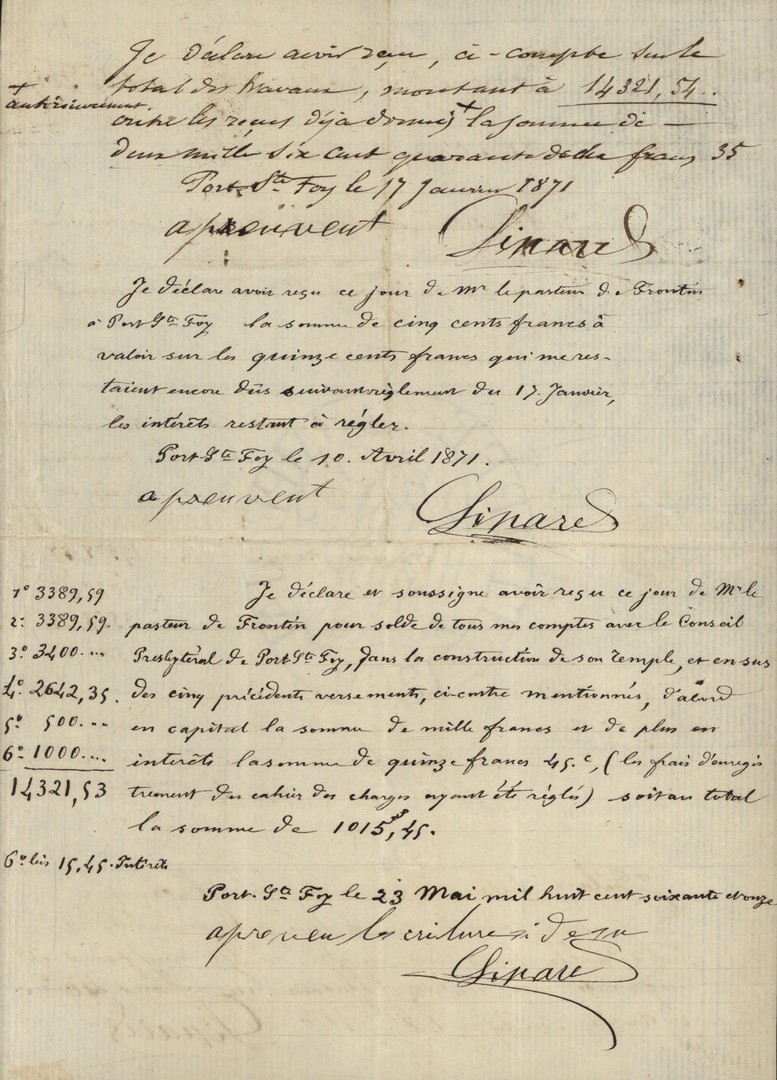 Je déclare avoir reçu, à-compte sur le
total des travaux, montant à 14321,54..
+
antérieurement.
outre les reçus déja donnés + la somme de —
deux mille six cent quarante deux francs 35
Port Ste Foy le 17 Janvier 1871
aprenuvent
Linard
Je déclare avoir reçu ce jour de Mr le pasteur de Frontin
à Port Ste Foy la somme de cinq cents francs à
valoir sur les quinze cents francs qui me res-
taient encore dûs suivant règlement du 17. Janvier,
les intérêts restant à régler.
Port-Ste Foy le 10. Avril 1871.
aprenuvent
Linard
Je déclare et soussigne avoir reçu ce jour de Mr le
pasteur de Frontin pour solde de tous mes comptes avec le Conseil
Presbytéral de Port-Ste Foy, dans la construction de son Temple, et en sus
des cinq précédents versements, ci-contre mentionnés, d'abord
en capital la somme de mille francs et de plus en
intérêts la somme de quinze francs 45.c, (les frais d'enregis
trement du cahier des charges ayant été réglés) soit au total
la somme de 1015,45.
1º 3389,59
2º 3389,59.
3º 3400....
4º 2642,35.
5º 500...
6º 1000....
14321,53
6º bis 15,45. Intérêts
Port-Ste Foy le 23 Mai mil huit cent soixante et onze
apreuveu lescriture si desu
Linard